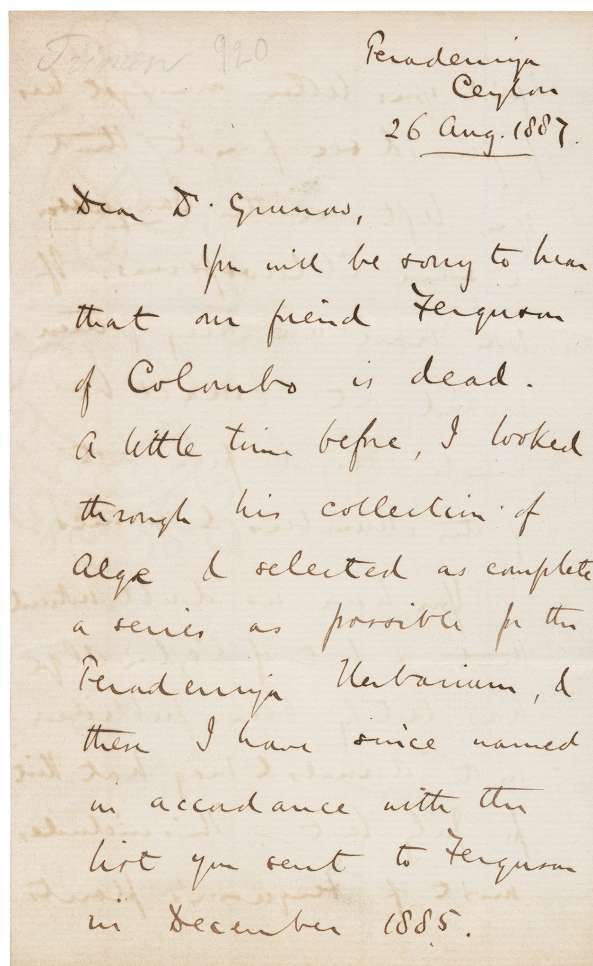 Trimen 920
Peradeniya
Ceylon
26 Aug. 1887.
Dear Dr. Grunow,
You will be sorry to hear
that our friend Ferguson
of Colombo is dead.
A little time before, I looked
through his collection of
Algæ & selected as complete
a series as possible for the
Peradeniya Herbarium, &
these I have since named
in accordance with the
list you sent to Ferguson
in December 1885.